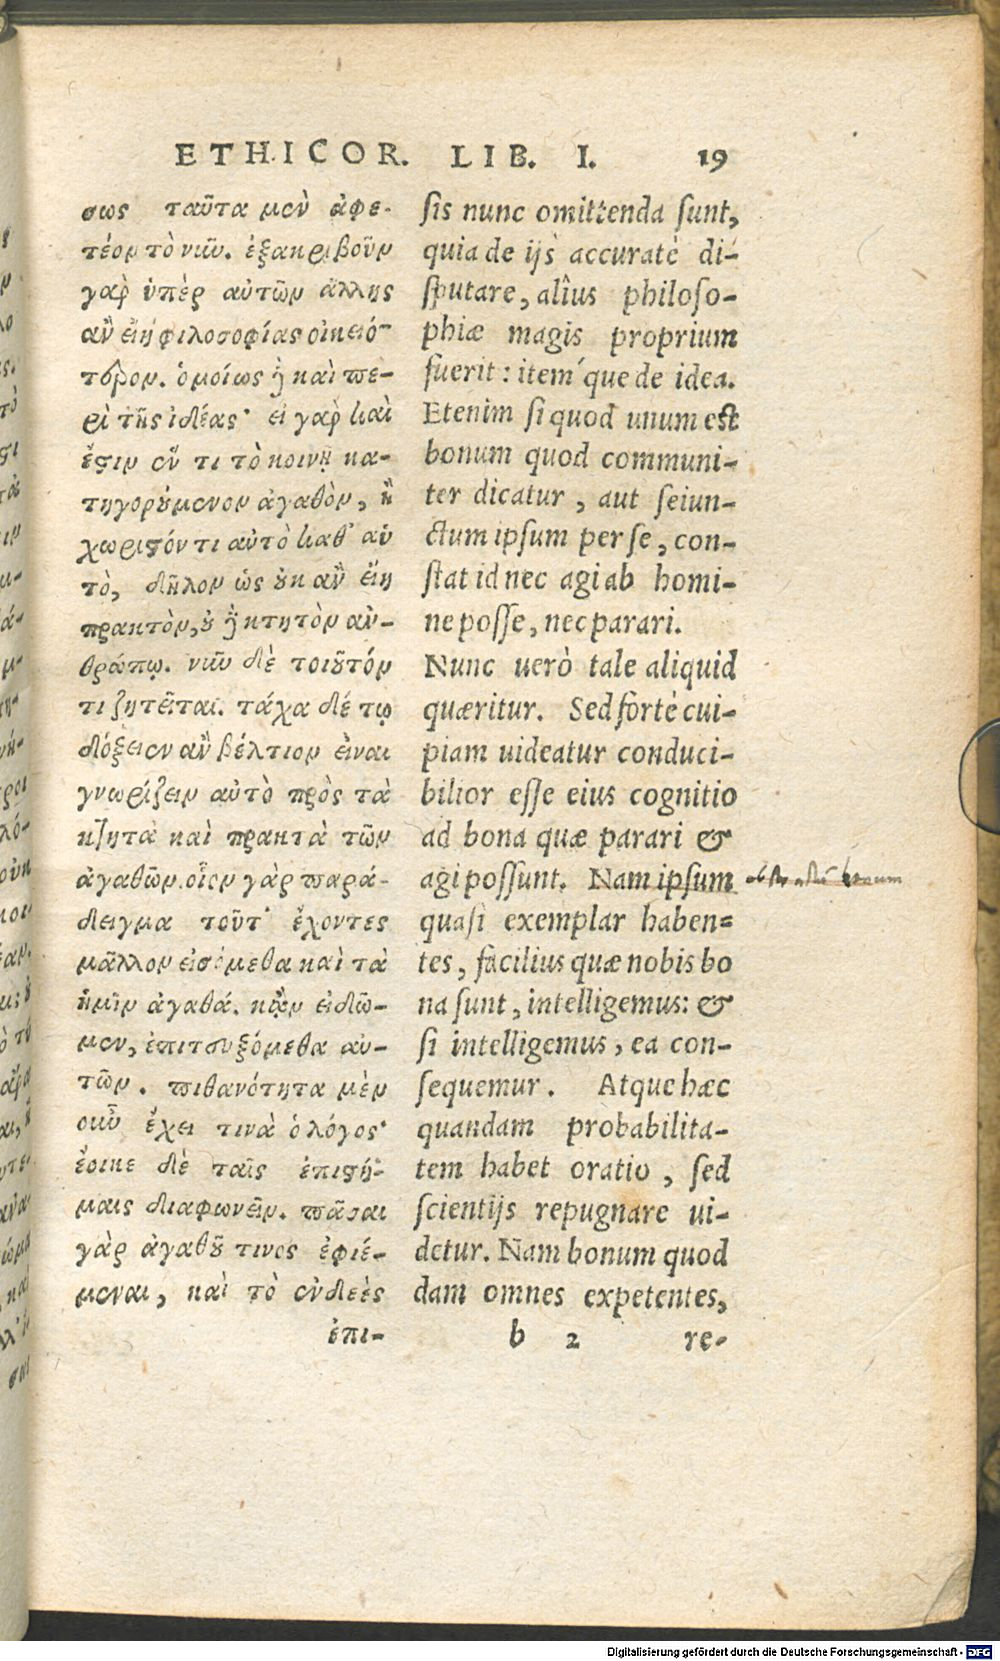 ETHICOR. LIB. I. 19
σως ταῦτα μὲν ἀφε-
τέον τὸ νῦν. ἐξακριβοῦν
γὰρ ὑπὲρ αὐτῶν ἄλλης
ἂν εἴη φιλοσοφίας οἰκειό-
τερον. ὁμοίως δὲ καὶ πε-
ρὶ τῆς ἰδέας· εἰ γὰρ καὶ
ἔστιν ἕν τι τὸ κοινῇ κα-
τηγορούμενον ἀγαθὸν, ἢ
χωριστόν τι αὐτὸ καθ' αὑ
τὸ, δῆλον ὡς οὐκ ἂν εἴη
πρακτὸν, οὐδὲ κτητὸν ἀν-
θρώπῳ. νῦν δὲ τοιοῦτόν
τι ζητεῖται. τάχα δέ τῳ
δόξειεν ἂν βέλτιον εἶναι
γνωρίζειν αὐτὸ πρὸς τὰ
κτητὰ καὶ πρακτὰ τῶν
ἀγαθῶν. οἷον γὰρ παρά-
δειγμα τοῦτ' ἔχοντες
μᾶλλον εἰσόμεθα καὶ τὰ
ἡμῖν ἀγαθά. κἂν εἰδῶ-
μεν, ἐπιτευξόμεθα αὐ-
τῶν. πιθανότητα μὲν
οὖν ἔχει τινὰ ὁ λόγος·
ἔοικε δὲ ταῖς ἐπιστή-
μαις διαφωνεῖν. πᾶσαι
γὰρ ἀγαθοῦ τινος ἐφιέ-
μεναι, καὶ τὸ ἐνδεὲς
ἐπι-
sis nunc omittenda sunt,
quia de ijs accuratè di-
sputare, alîus philoso-
phiæ magis proprium
fuerit: item´que de idea.
Etenim si quod unum est
bonum quod communi-
ter dicatur, aut seiun-
ctum ipsum per se, con-
stat id nec agi ab homi-
ne posse, nec parari.
Nunc uerò tale aliquid
quæritur. Sed fortè cui-
piam uideatur conduci-
bilior esse eius cognitio
ad bona quæ parari &
agi possunt. Nam ipsum
bonum
quasi exemplar haben-
tes, facilius quæ nobis bo
na sunt, intelligemus: &
si intelligemus, ea con-
sequemur. Atque hæc
quandam probabilita-
tem habet oratio, sed
scientijs repugnare ui-
detur. Nam bonum quod
dam omnes expetentes,
b 2 re-
Digitalisierung gefördert durch die Deutsche Forschungsgemeinschaft - DFG